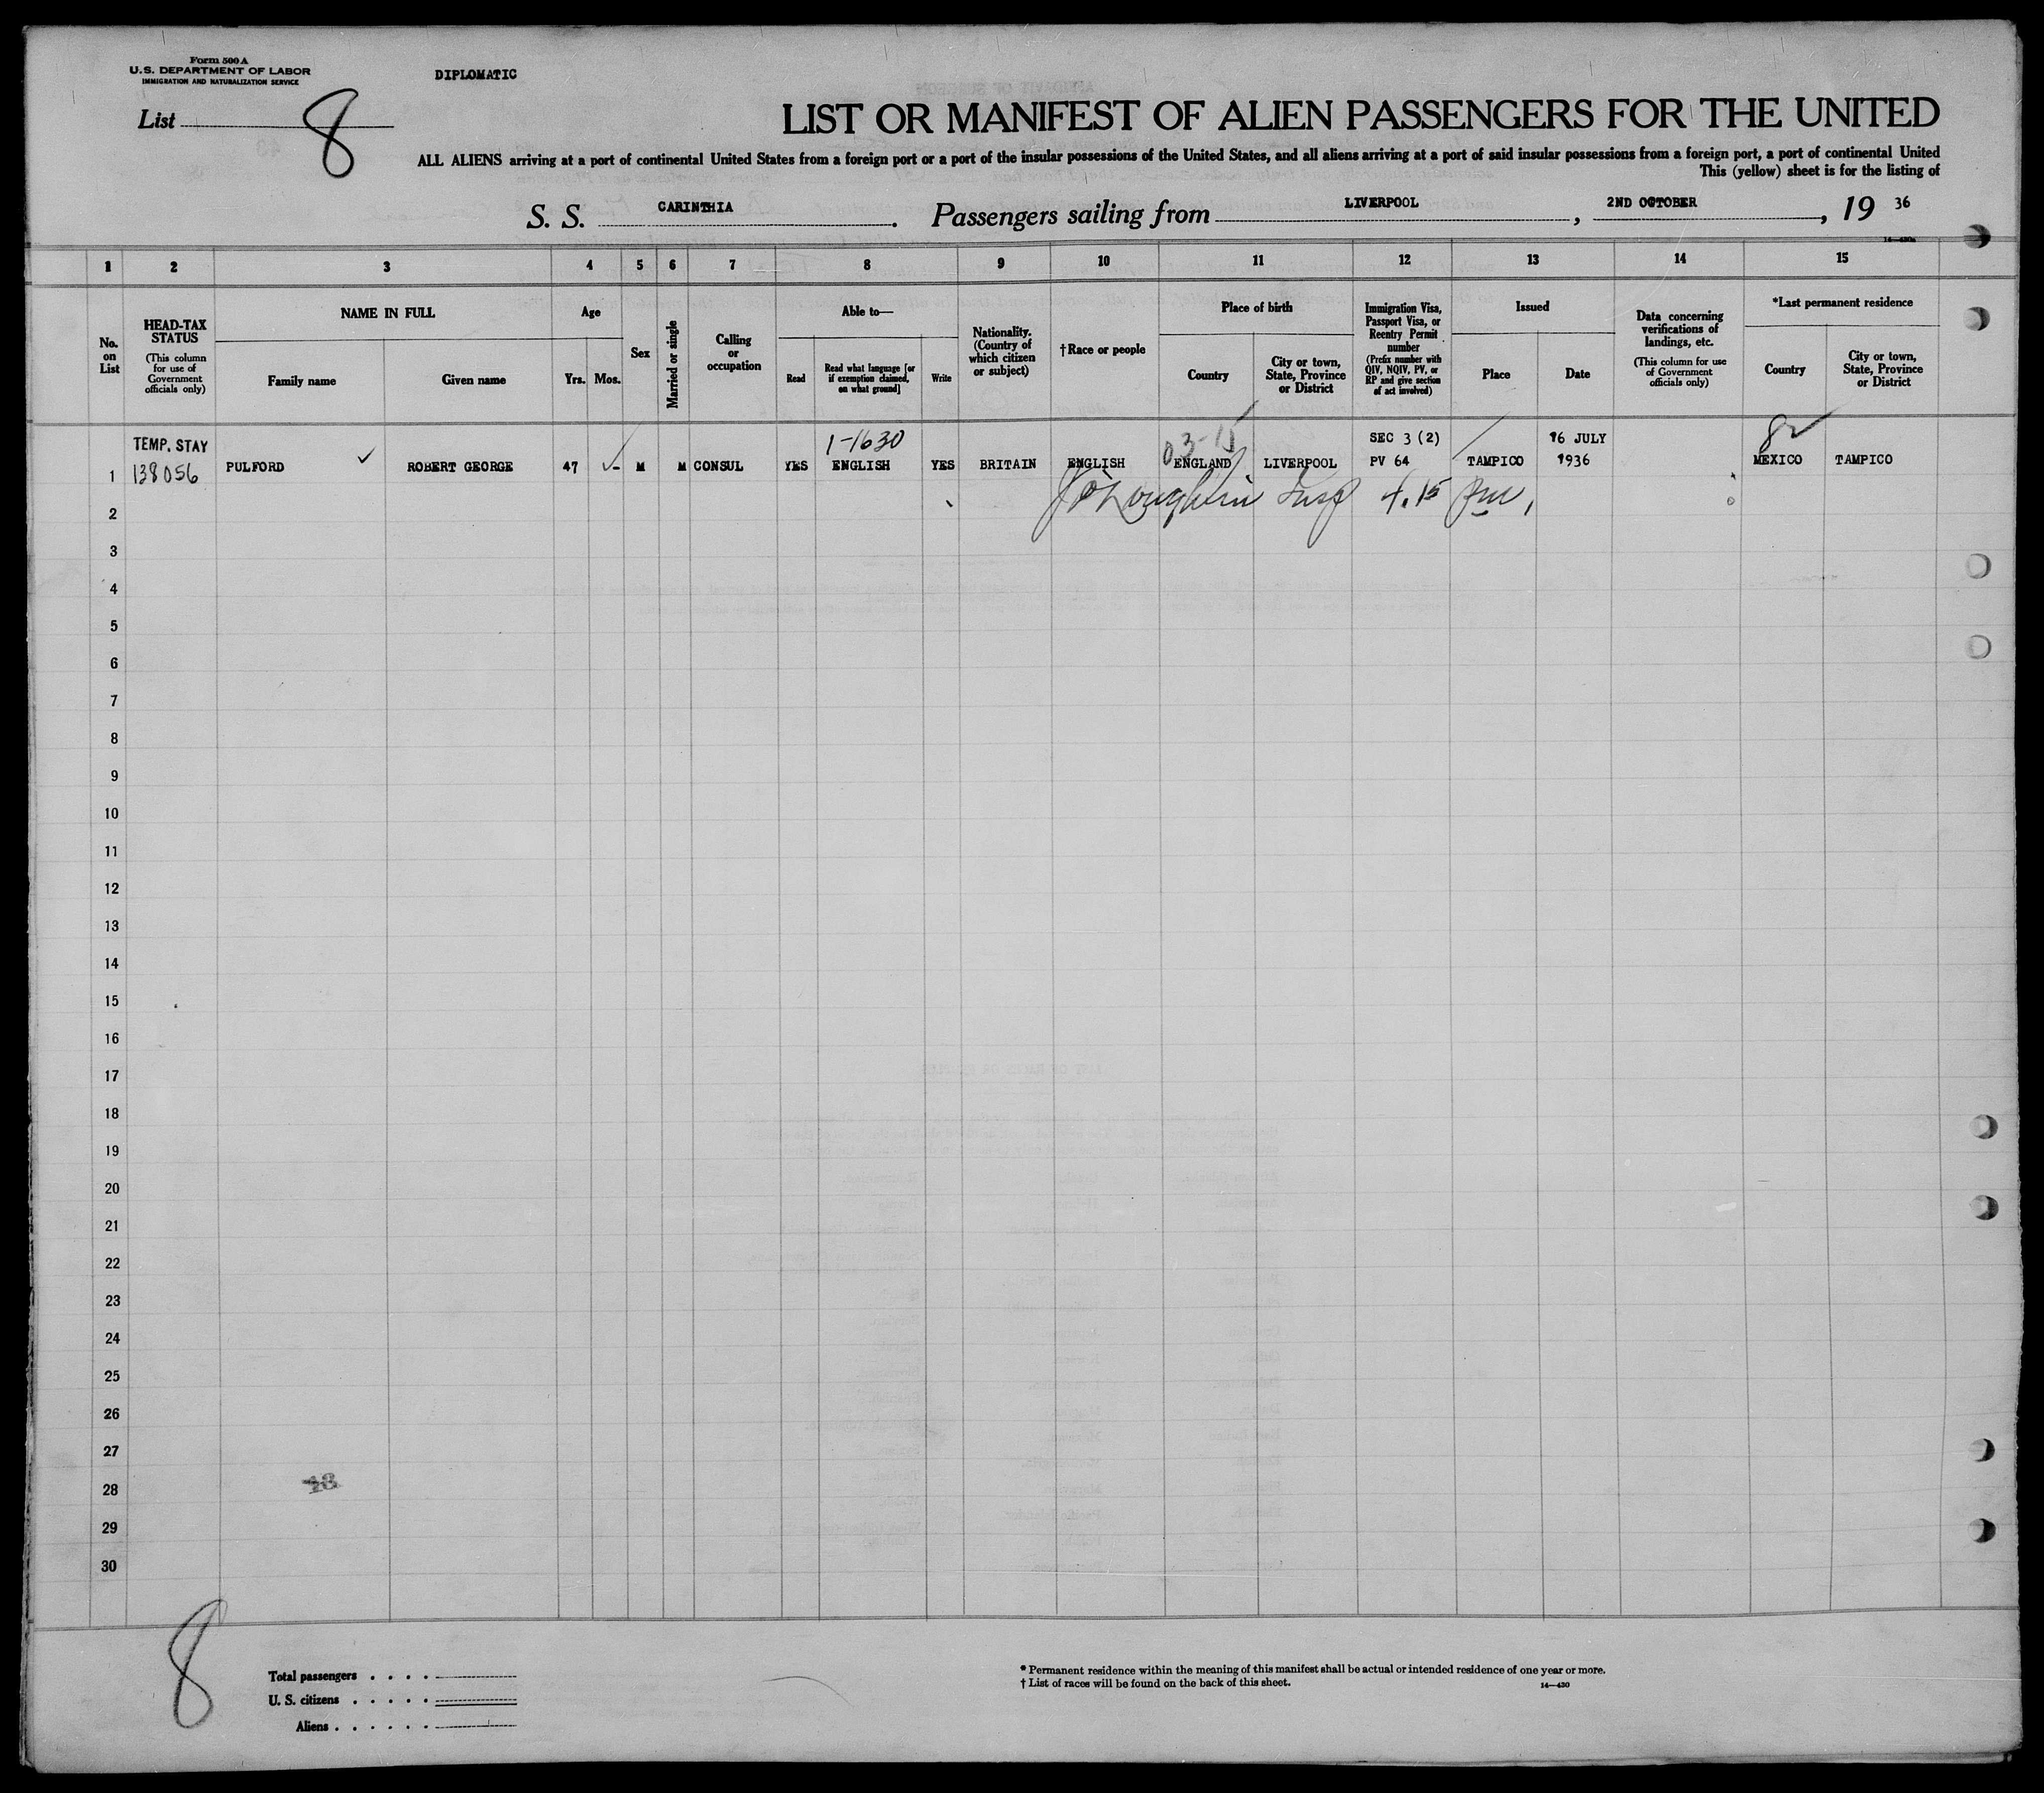 Form 500 A
U.S. DEPARTMENT OF LABOR
IMMIGRATION AND NATURALIZATION SERVICE
DIPLOMATIC
List 8
LIST OR MANIFEST OF ALIEN PASSENGERS FOR THE UNITED
ALL ALIENS arriving at a port of continental United States from a foreign port or a port of the insular possessions of the United States, and all aliens arriving at a port of said insular possessions from a foreign port, a port of continental United
This (yellow) sheet is for the listing of
S. S. CARINTHIA. Passengers sailing from LIVERPOOL, 2ND OCTOBER, 19 36
1 2 3 4 5 6 7 8 9 10 11 12 13 14 15
No. on List
HEAD-TAX STATUS
(This column for use of Government officials only)
NAME IN FULL
Family name
Given name
Age
Yrs. Mos.
Sex
Married or single
Calling or occupation
Able to—
Read
Read what language [or if exemption claimed, on what ground]
Write
Nationality. (Country of which citizen or subject)
†Race or people
Place of birth
Country
City or town, State, Province or District
Immigration Visa, Passport Visa, or Reentry Permit number
(Prefix number with QIV, NQIV, PV, or RP and give section of act involved)
Issued
Place
Date
Data concerning verifications of landings, etc.
(This column for use of Government officials only)
*Last permanent residence
Country
City or town, State, Province or District
TEMP. STAY 1-1630 03-15 SEC 3 (2) 16 JULY 82
1 138056 PULFORD ✓ ROBERT GEORGE 47 ✓- M M CONSUL YES ENGLISH YES BRITAIN ENGLISH ENGLAND LIVERPOOL PV 64 TAMPICO 1936 MEXICO TAMPICO
J O'Loughlin Insp 4.15 pm
2
3
4
5
6
7
8
9
10
11
12
13
14
15
16
17
18
19
20
21
22
23
24
25
26
27
28
29
30
8
Total passengers . . . .
U. S. citizens . . . . .
Aliens . . . . . .
* Permanent residence within the meaning of this manifest shall be actual or intended residence of one year or more.
† List of races will be found on the back of this sheet.
14—430